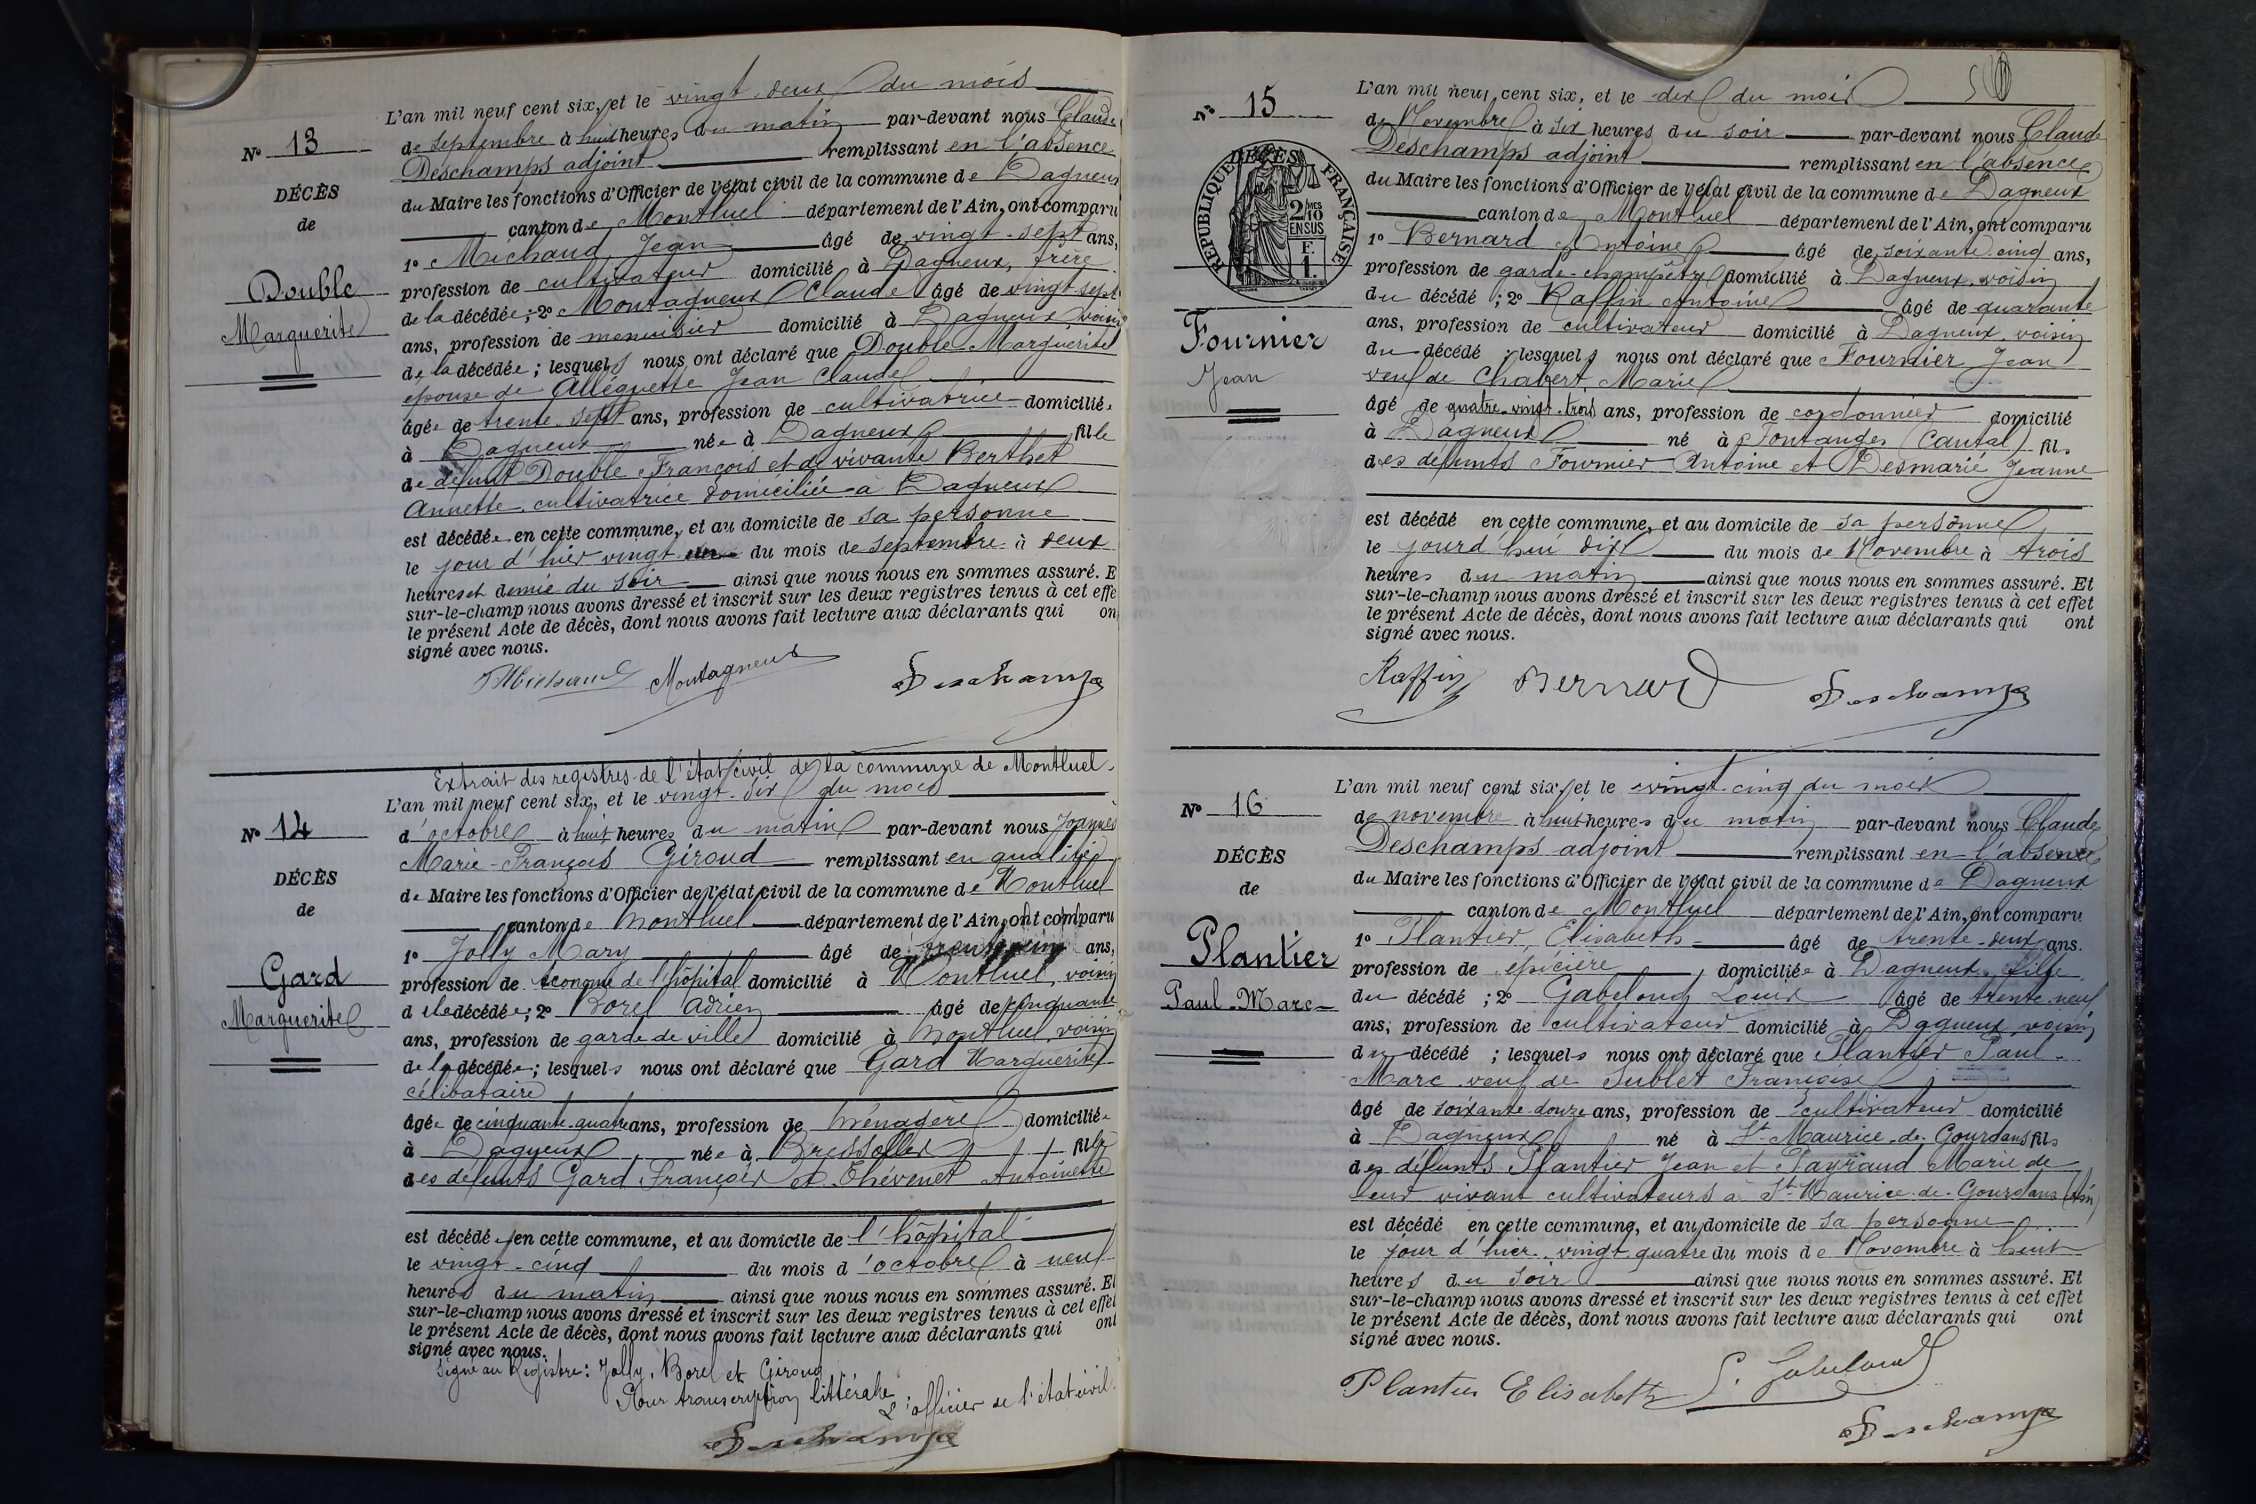 N° 13
DÉCÈS
de
Double
Marguerite
L'an mil neuf cent six, et le vingt deux du mois
de septembre à huit heures du matin par-devant nous Claude
Deschamps adjoint remplissant en l'absence
du Maire les fonctions d'Officier de l'état civil de la commune de Dagneux
canton de Montluel département de l'Ain, ont comparu
1° Michaud Jean âgé de vingt-sept ans,
profession de cultivateur domicilié à Dagneux, frère
de la décédée; 2° Montagneux Claude âgé de vingt sept
ans, profession de menuisier domicilié à Dagneux voisin
de la décédée; lesquels nous ont déclaré que Double Marguerite
épouse de Alléguette Jean Claude
âgée de trente sept ans, profession de cultivatrice domiciliée
à Dagneux née à Dagneux fille
de défunt Double François et de vivante Berthet
Annette cultivatrice domiciliée à Dagneux
est décédée en cette commune, et au domicile de sa personne
le jour d'hier vingt du mois de septembre à deux
heures et demie du soir ainsi que nous nous en sommes assuré. E
sur-le-champ nous avons dressé et inscrit sur les deux registres tenus à cet effe
le présent Acte de décès, dont nous avons fait lecture aux déclarants qui on
signé avec nous.
Michaud Montagneux Deschamps
N° 14
DÉCÈS
de
Gard
Marguerite
Extrait des registres de l'état civil de la commune de Montluel.
L'an mil neuf cent six, et le vingt-six du mois
d'octobre à huit heures du matin par-devant nous Joannès
Marie-François Giroud remplissant en qualité
de Maire les fonctions d'Officier de l'état civil de la commune de Montluel
canton de Montluel département de l'Ain, ont comparu
1° Jolly Mary âgé de ans,
profession de économe de l'hôpital domicilié à Montluel, voisin
de la décédée; 2° Borel Adrien âgé de cinquante
ans, profession de garde de ville domicilié à Montluel, voisin
de la décédée; lesquels nous ont déclaré que Gard Marguerite
célibataire
âgée de cinquante-quatre ans, profession de ménagère domiciliée
à Dagneux née à Bressolles fille
des défunts Gard François et Thévenet Antoinette
est décédée en cette commune, et au domicile de l'hôpital
le vingt-cinq du mois d'octobre à neuf
heures du matin ainsi que nous nous en sommes assuré. Et
sur-le-champ nous avons dressé et inscrit sur les deux registres tenus à cet effet
le présent Acte de décès, dont nous avons fait lecture aux déclarants qui ont
signé avec nous.
Signé au Registre: Jolly, Borel et Giroud
Pour transcription littérale
L'officier de l'état civil.
Deschamps
N° 15
DÉCÈS
RÉPUBLIQUE FRANÇAISE
2/10MES
EN SUS
F.
1.
Fournier
Jean
L'an mil neuf cent six, et le dix du mois
de Novembre à six heures du soir par-devant nous Claude
Deschamps adjoint remplissant en l'absence
du Maire les fonctions d'Officier de l'état civil de la commune de Dagneux
canton de Montluel département de l'Ain, ont comparu
1° Bernard Antoine âgé de soixante cinq ans,
profession de garde-champêtre domicilié à Dagneux, voisin
du décédé; 2° Raffin Antoine âgé de quarante
ans, profession de cultivateur domicilié à Dagneux voisin
du décédé; lesquels nous ont déclaré que Fournier Jean
veuf de Chabert Marie
âgé de quatre-vingt-trois ans, profession de cordonnier domicilié
à Dagneux né à Fontanges (Cantal) fils
des défunts Fournier Antoine et Desmarié Jeanne
est décédé en cette commune, et au domicile de sa personne
le jourd'hui dix du mois de Novembre à trois
heures du matin ainsi que nous nous en sommes assuré. Et
sur-le-champ nous avons dressé et inscrit sur les deux registres tenus à cet effet
le présent Acte de décès, dont nous avons fait lecture aux déclarants qui ont
signé avec nous.
Raffin Bernard Deschamps
N° 16
DÉCÈS
de
Plantier
Paul-Marc
L'an mil neuf cent six, et le vingt-cinq du mois
de novembre à huit heures du matin par-devant nous Claude
Deschamps adjoint remplissant en l'absence
du Maire les fonctions d'Officier de l'état civil de la commune de Dagneux
canton de Montluel département de l'Ain, ont comparu
1° Plantier, Elisabeth âgé de trente-deux ans.
profession de épicière domiciliée à Dagneux, fille
du décédé; 2° Gabeloud Louis âgé de trente-neuf
ans, profession de cultivateur domicilié à Dagneux, voisin
du décédé; lesquels nous ont déclaré que Plantier Paul-
Marc veuf de Sublet Françoise
âgé de soixante-douze ans, profession de cultivateur domicilié
à Dagneux né à St Maurice-de-Gourdans fils
des défunts Plantier Jean et Payraud Marie de
leur vivant cultivateurs à St Maurice-de-Gourdans (Ain)
est décédé en cette commune, et au domicile de sa personne
le jour d'hier vingt quatre du mois de Novembre à huit
heures du soir ainsi que nous nous en sommes assuré. Et
sur-le-champ nous avons dressé et inscrit sur les deux registres tenus à cet effet
le présent Acte de décès, dont nous avons fait lecture aux déclarants qui ont
signé avec nous.
Plantier Elisabeth L. Gabeloud
Deschamps